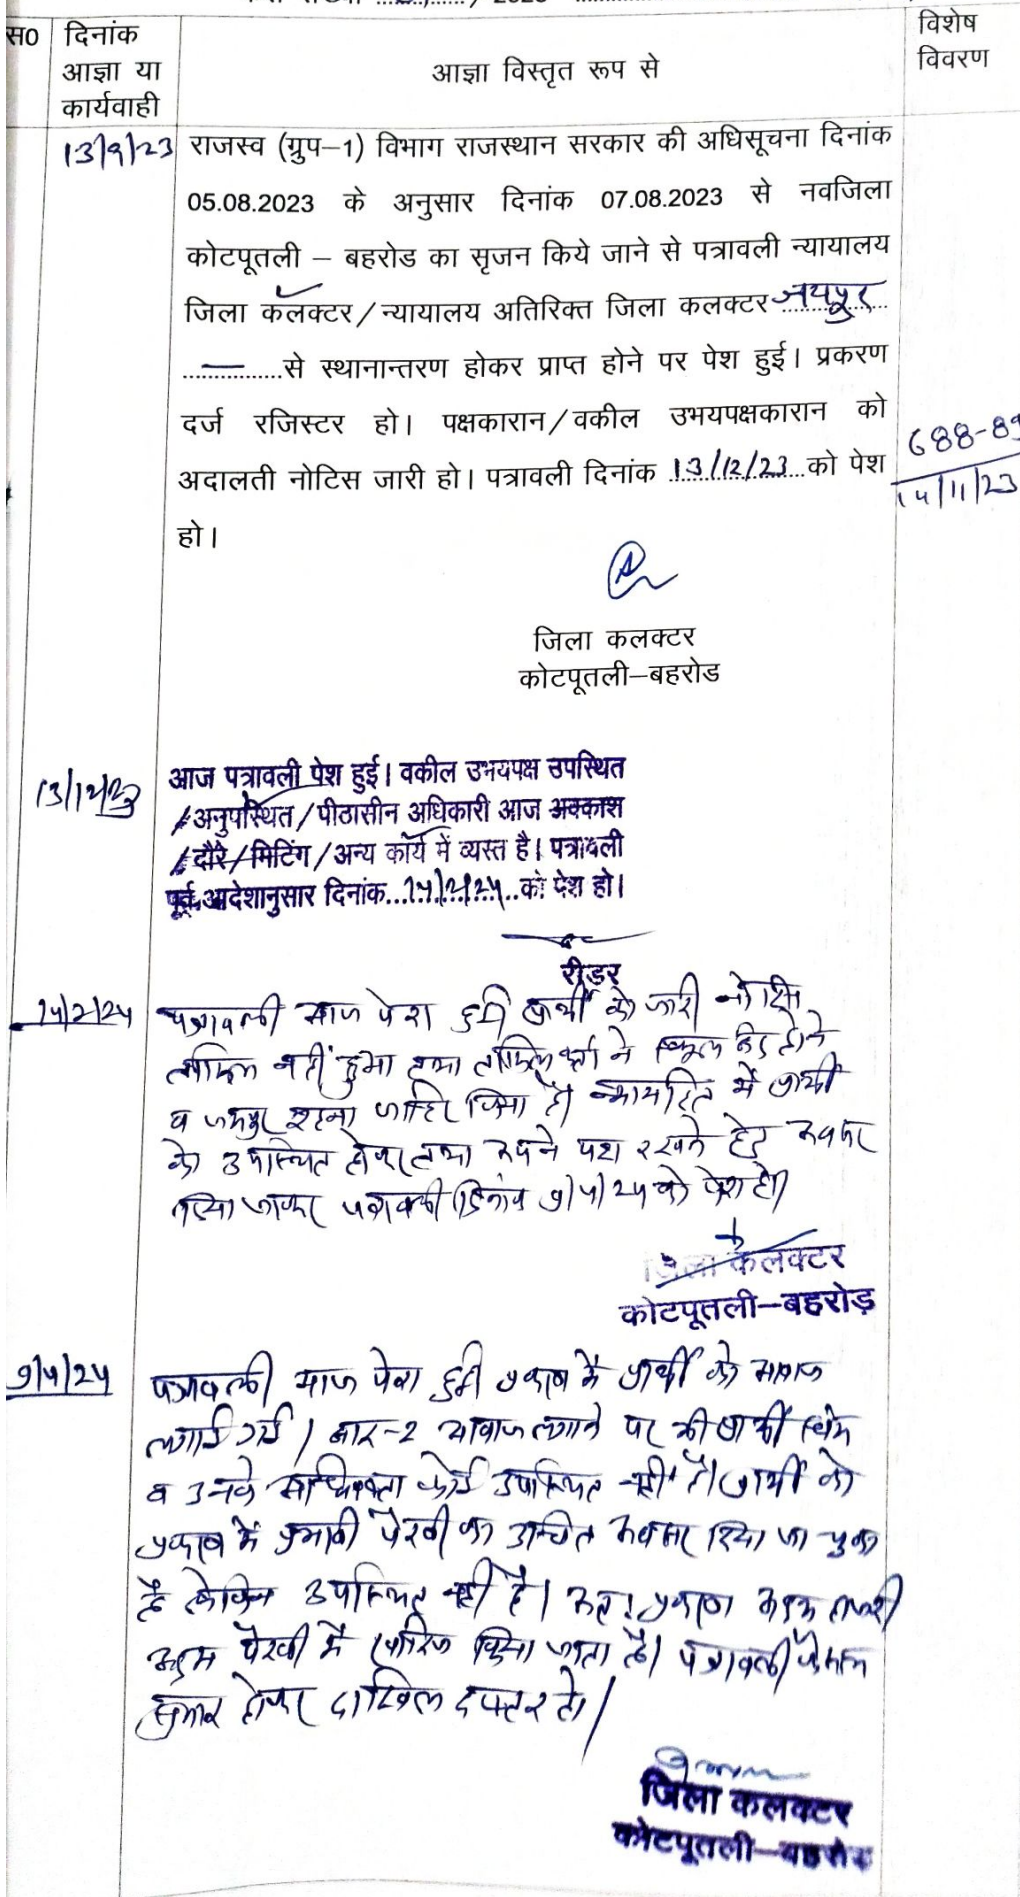 / 2023
स0 दिनांक आज्ञा या कार्यवाही
आज्ञा विस्तृत रूप से
विशेष विवरण
13/9/23 राजस्व (ग्रुप–1) विभाग राजस्थान सरकार की अधिसूचना दिनांक
05.08.2023 के अनुसार दिनांक 07.08.2023 से नवजिला
कोटपूतली – बहरोड का सृजन किये जाने से पत्रावली न्यायालय
जिला कॅलक्टर/न्यायालय अतिरिक्त जिला कलक्टर जयपुर
..............से स्थानान्तरण होकर प्राप्त होने पर पेश हुई। प्रकरण
दर्ज रजिस्टर हो। पक्षकारान/वकील उभयपक्षकारान को
अदालती नोटिस जारी हो। पत्रावली दिनांक 13/12/23 को पेश
हो।
688-89
14/11/23
जिला कलक्टर
कोटपूतली–बहरोड
13/12/23 आज पत्रावली पेश हुई। वकील उभयपक्ष उपस्थित
/अनुपस्थित/पीठासीन अधिकारी आज अवकाश
/दौरे/मिटिंग/अन्य कार्य में व्यस्त है। पत्रावली
पूर्व आदेशानुसार दिनांक...14/2/24..को पेश हो।
रीडर
14/2/24 पत्रावली आज पेश हुई प्रार्थी को जारी नोटिस
तामिल नहीं हुआ तथा तामिल कर्ता ने
व जयपुर रहना जाहिर किया है। न्यायहित में प्रार्थी
को उपस्थित होकर तथा अपने पक्ष रखने हेतु अवसर
दिया जाकर पत्रावली दिनांक 9/4/24 को पेश हो।
जिला कलक्टर
कोटपूतली–बहरोड़
9/4/24 पत्रावली आज पेश हुई प्रकरण में प्रार्थी को आवाज
लगाई गई। बार-2 आवाज लगाने पर भी प्रार्थी
व उनके अधिवक्ता कोई उपस्थित नहीं है। प्रार्थी को
प्रकरण में प्रभावी पैरवी का उचित अवसर दिया जा चुका
है लेकिन उपस्थित नहीं है। अतः प्रकरण अदम हाजरी
अदम पैरवी में खारिज किया जाता है। पत्रावली फैसल
शुमार होकर दाखिल दफ्तर हो।
जिला कलक्टर
कोटपूतली–बहरोड